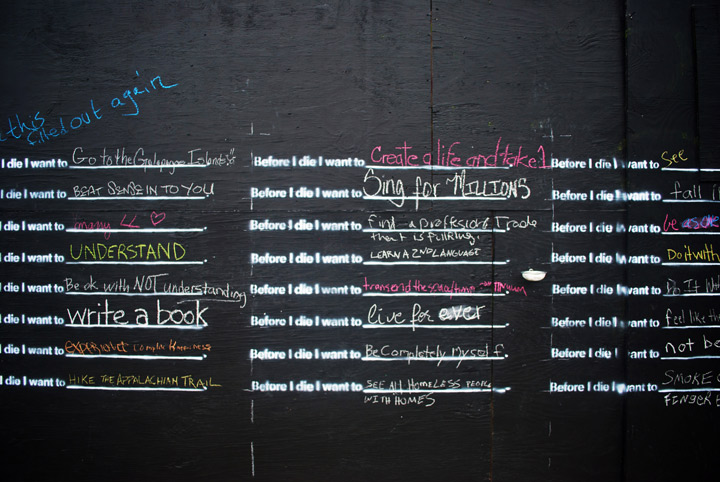 this
filled out again
I die I want to Go to the Galapagos Islands!
I die I want to BEAT SENSE IN TO YOU
I die I want to marry
I die I want to UNDERSTAND
I die I want to Be ok with NOT understanding
I die I want to write a book
I die I want to EXPERIENCE Happiness
I die I want to HIKE THE APPALACHIAN TRAIL
Before I die I want to Create a life and take 1
Before I die I want to Sing for MILLIONS
Before I die I want to find a profession/Trade
that is fulfilling.
Before I die I want to LEARN A 2ND LANGUAGE
Before I die I want to transcend the
Before I die I want to live for ever
Before I die I want to Be Completely Myself.
Before I die I want to SEE ALL HOMELESS PEOPLE
WITH HOMES
Before I die I want to see
Before I die I want to fall
Before I die I want to be
Before I die I want to Do it with
Before I die I want to Do It
Before I die I want to feel like
Before I die I want to not be
Before I die I want to SMOKE
FINGER